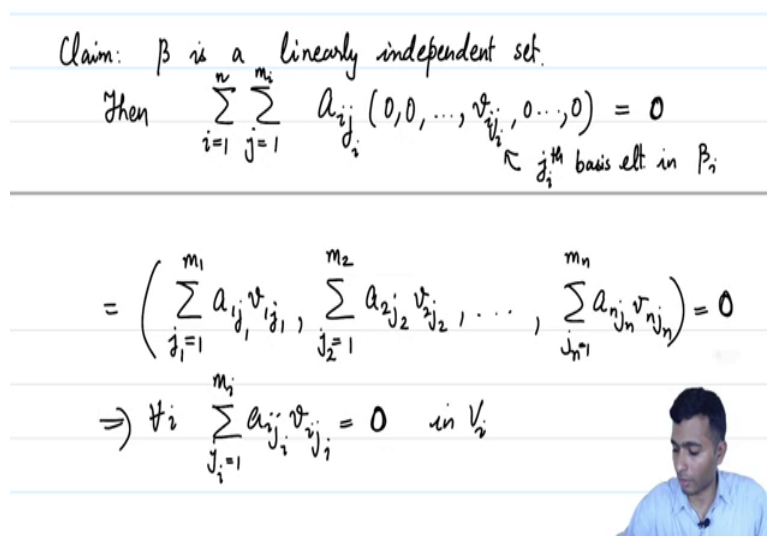 Claim: β is a linearly independent set.
Then ∑_{i=1}^{n} ∑_{j=1}^{m_i} a_{ij_i} (0,0,...,v_{ij_i},0...,0) = 0
↖ j_i^{th} basis elt in β_i
= ( ∑_{j_1=1}^{m_1} a_{1j_1} v_{1j_1}, ∑_{j_2=1}^{m_2} a_{2j_2} v_{2j_2}, ..., ∑_{j_n=1}^{m_n} a_{nj_n} v_{nj_n} ) = 0
⇒ ∀i ∑_{j_i=1}^{m_i} a_{ij_i} v_{ij_i} = 0 in V_i